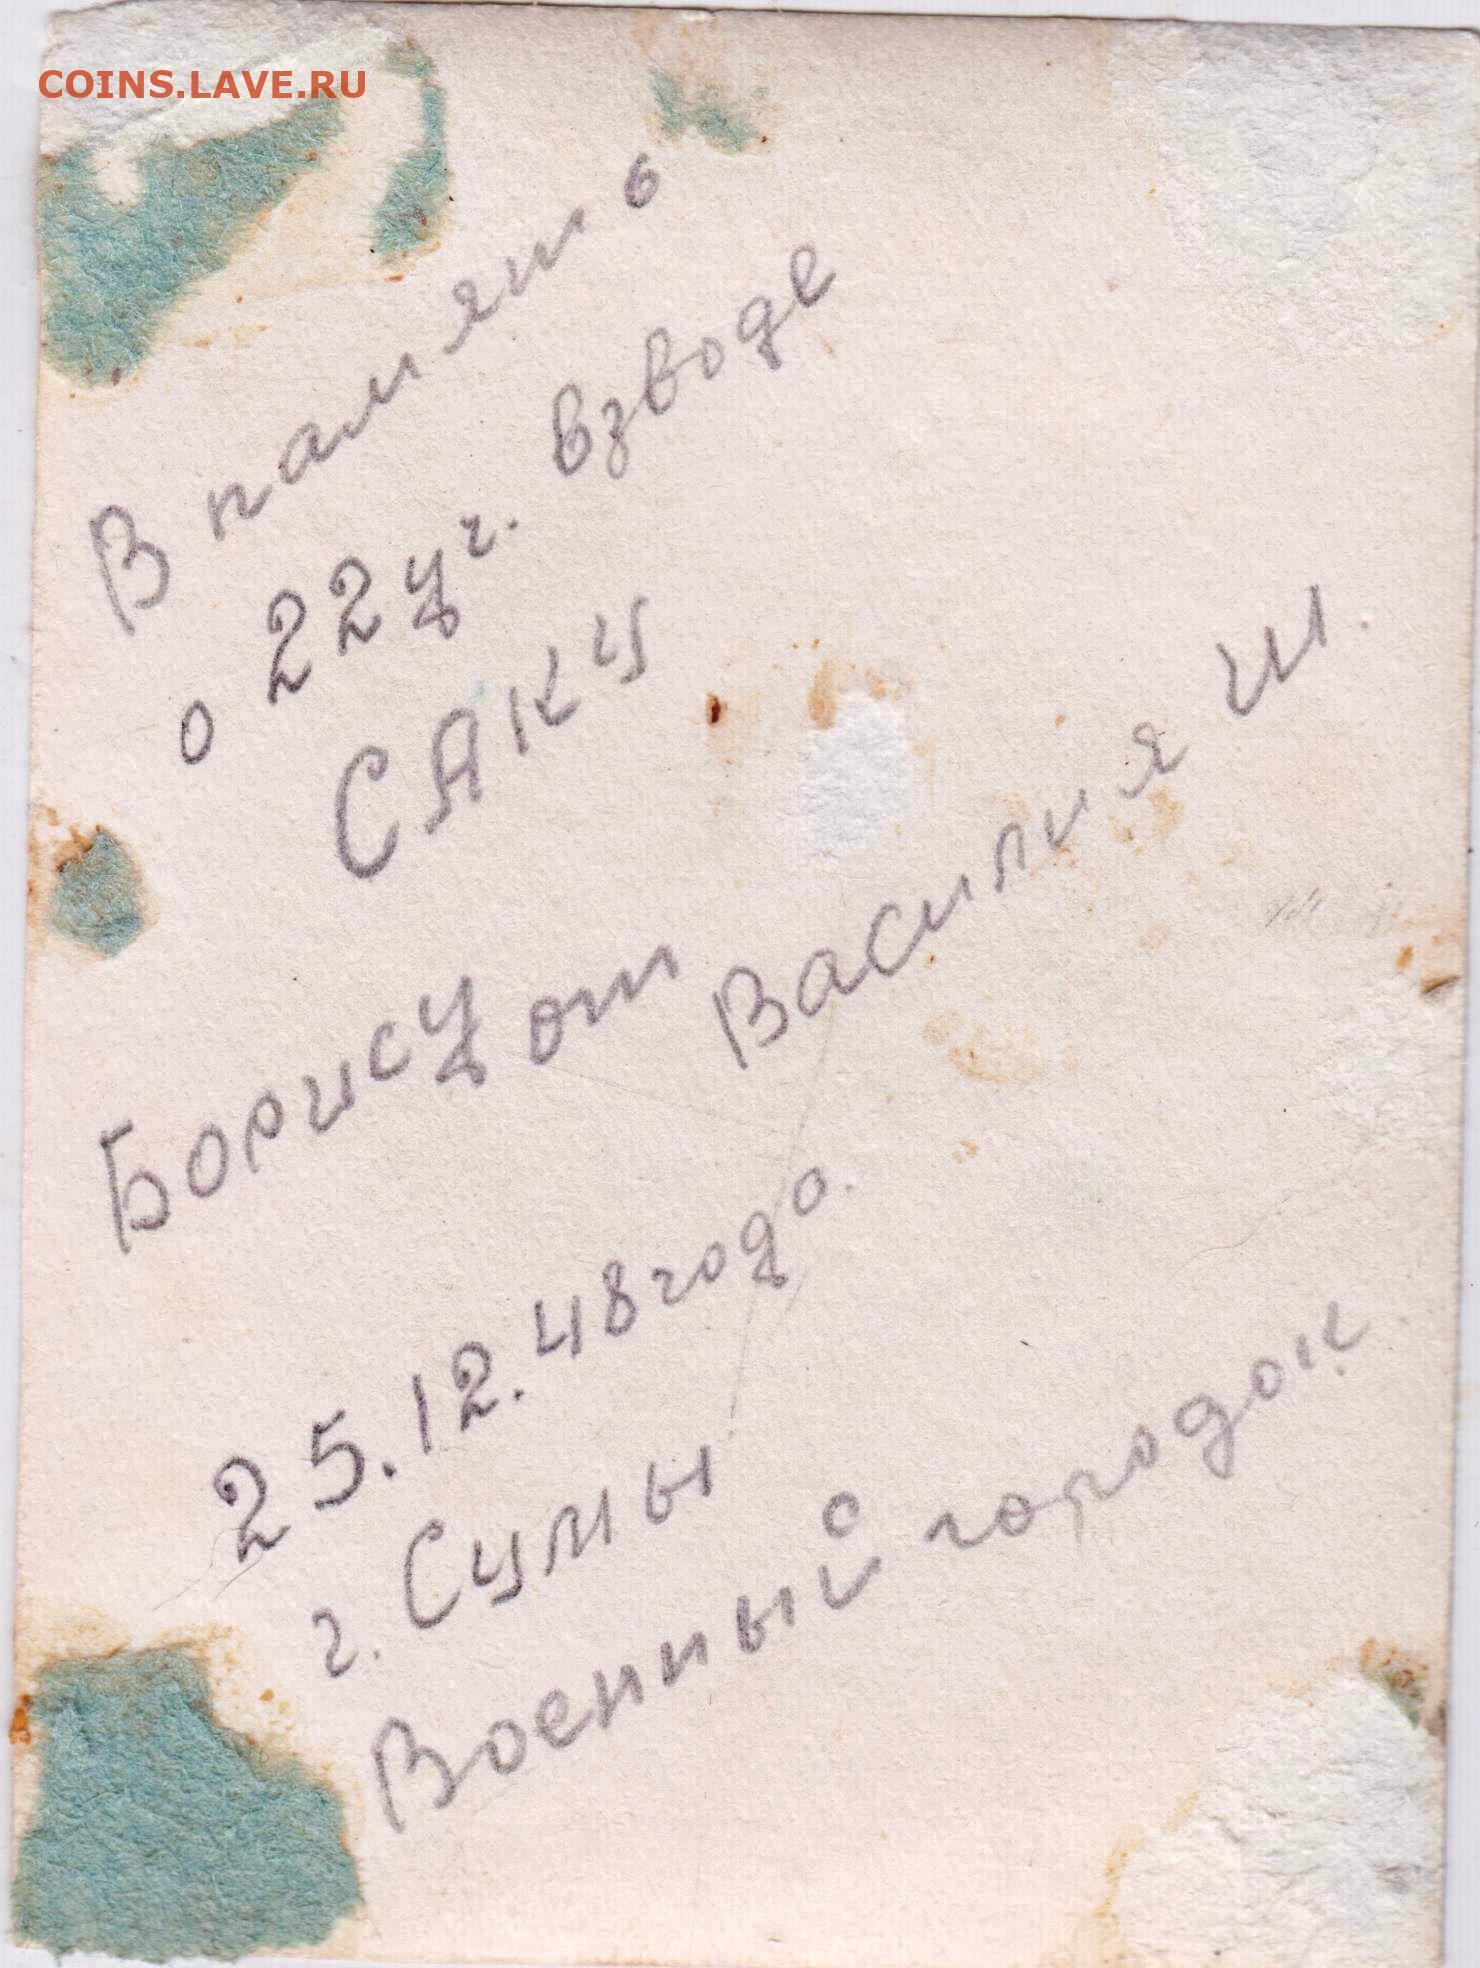 COINS.LAVE.RU
В память
о 22 уч. взводе
САКУ
Борису от Василия Ш.
25.12.48 года.
г. Сумы
Военный городок